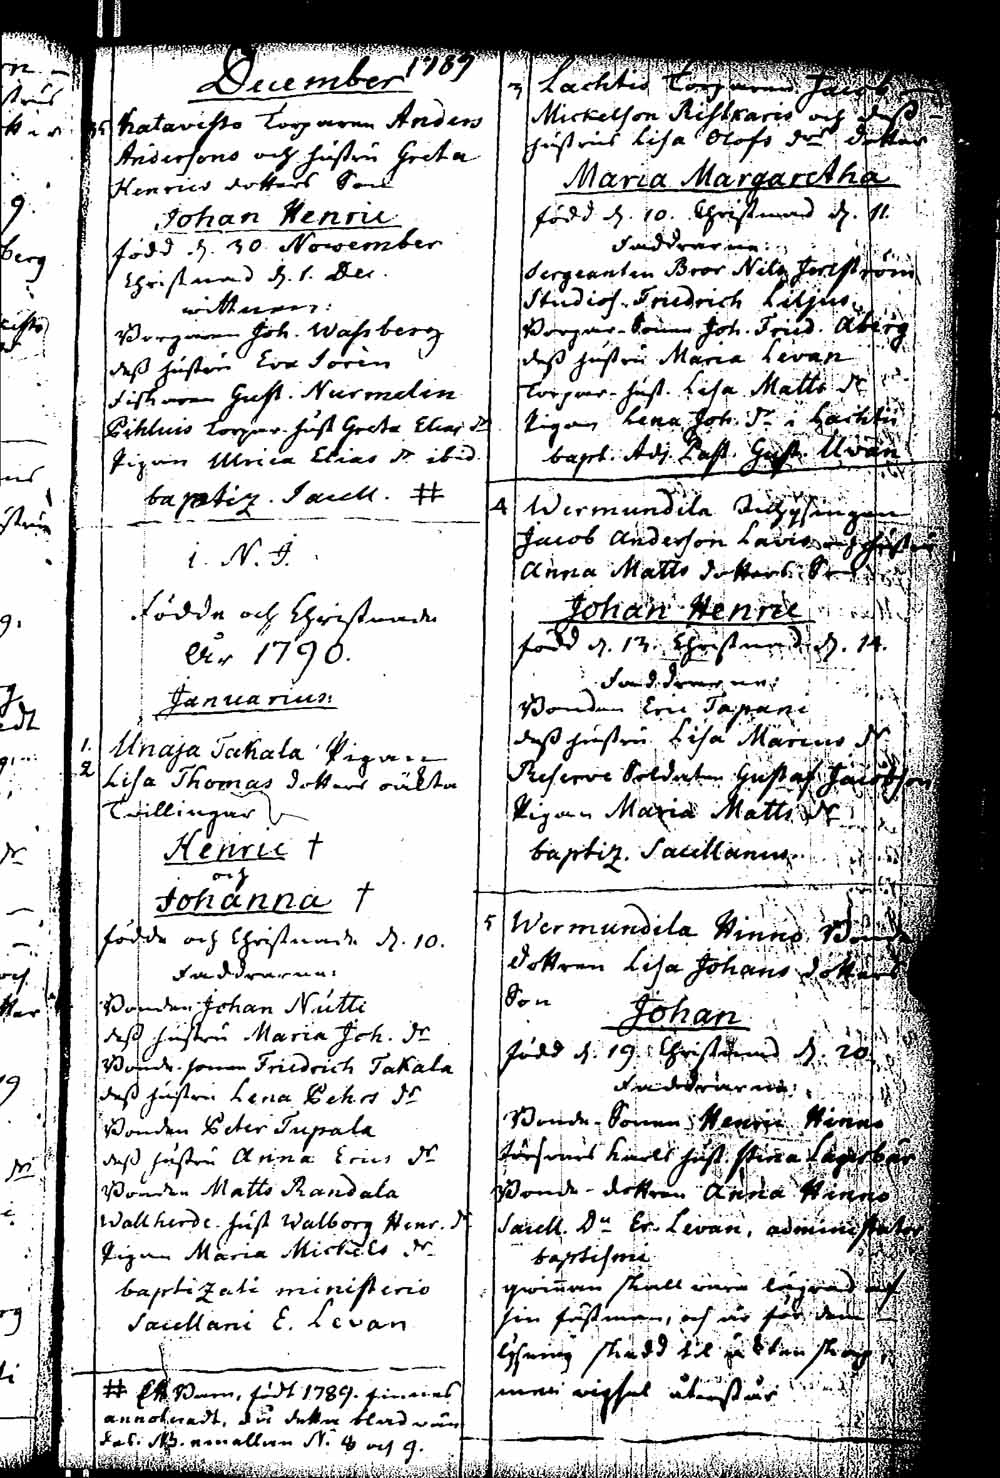 December 1789
35 Katavisto Torparen Anders
Andersons och hustru Greta
Henrics dotters Son
Johan Henric
född d. 30 November
Christnad d. 1. Dec.
wittnen:
Borgaren Joh. Wassberg
dess hustru Eva Sorin
Fiskaren Gust. Nurmelin
Pihluis Torpar. hust Greta Elias dr
Pigan Ulrica Elias dr ibid.
baptiz. Sacell. #
i. N. J.
Födde och Christnade
År 1790.
Januarius:
1. Unaja Takala Pigan
2 Lisa Thomas dotters oäkta
Tvillingar
Henric †
och
Johanna †
födde och Christnade d. 10.
Faddrarne:
Bonden Johan Nutti
dess hustru Maria Joh. dr
Bonde-sonen Friedrich Takala
dess hustru Lena Pehrs dr
Bonden Peter Tupala
dess hustru Anna Erics dr
Bonden Matts Randala
Wallherde. hust Walborg Henr. dr
Pigan Maria Michels dr
baptizati ministerio
Sacellani E. Levan
# Ett Barn, födt 1789. finnes
annoteradt, då detta blad wän
des. NB. emellan N. 8 och 9.
3 Lachtis Torparen Jacob
Mickelson Ristkaris och dess
hustrus Lisa Olofs drs dotter
Maria Margaretha
född d. 10. Christnad d. 11.
Faddrarne:
Sergeanten Bror Nils
Studios. Friedrich Liljus.
Borgar-Sonen Joh. Fried. Åberg
dess hustru Maria Levan
Torpar-hust. Lisa Matts dr
Pigan Lena Joh. dr i Lachtis
bapt. Adj. Past. Gust. Uvan
4 Wermundila
Jacob Anderson Lavis och hustru
Anna Matts dotters Son
Johan Henric
född d. 13. Christnad d. 14.
Faddrarne:
Bonden Eric Tapani
dess hustru Lisa Marcus dr
Reserve Soldaten Gustaf Jacobson
Pigan Maria Matts dr
baptiz. Sacellanus.
5 Wermundila Hinno Bonde
dottren Lisa Johans dotters
Son
Johan
född d. 19. Christnad d. 20.
Faddrarne:
Bonde-Sonen Henric Hinno
Karls hust Stina Lagerbär
Bonde-dottren Anna Hinno
Sacell. Dn Er. Levan, administrator
baptismi
qwinnan skall vara lägrad af
sin fästman, och är för dem
lysning skedd til äktenskap,
men wigsel återstår